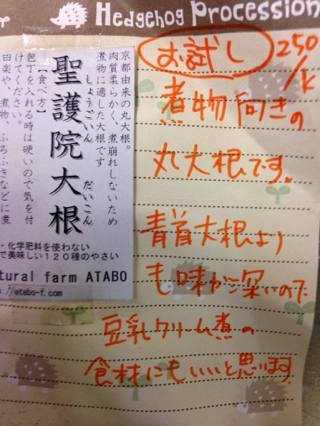 Hedgehog Procession
お試し
250/k
煮物向きの
丸大根です。
青首大根より
も味が深いので
豆乳クリーム煮の
食材にもいいと思います
聖護院大根
しょうごいん だいこん
京都由来の丸大根。
肉質柔らかく、煮崩れしないため
煮物に適した大根です
【食べ方】
包丁を入れる時は硬いので気を付
けてください。
田楽や、煮物、ふろふきなどに煮
・化学肥料を使わない
で美味しい120種のやさい
tural farm ATABO
//atabo-f.com